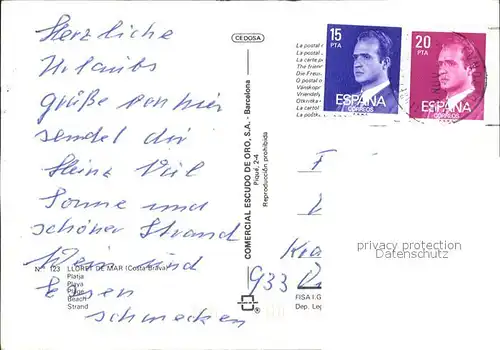 Herzliche
Urlaubs
grüße von hier
sendet dir
Heinz Viel
Sonne und
schöner Strand
Wein und
Essen
schmecken
Nº 123 LLORET DE MAR (Costa Brava)
Platja
Playa
Plage
Beach
Strand
CEDOSA
COMERCIAL ESCUDO DE ORO, S.A. - Barcelona
Piqué, 2-4
Reproducción prohibida
La postal
La postal
La carte
The
Die
O postal
Vriendel
La cartol
15
PTA
ESPAÑA
CORREOS
20
PTA
ESPAÑA
CORREOS
privacy protection
Datenschutz
933
FISA I.G.
Dep. Leg